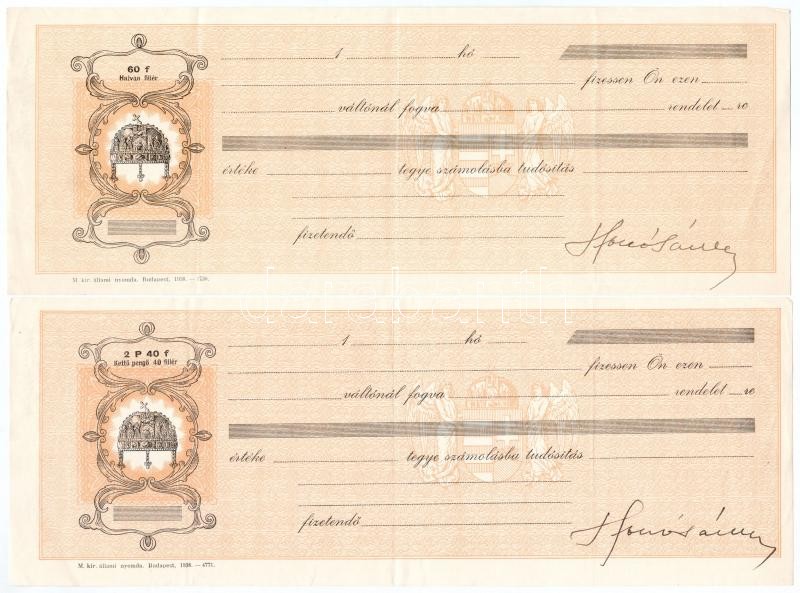 60 f
Hatvan fillér
1 hó
fizessen Ön ezen
váltónál fogva rendelet re
értéke tegye számolásba tudósítás
fizetendő
M. kir. állami nyomda. Budapest, 1938. —
2 P 40 f
Kettő pengő 40 fillér
1 hó
fizessen Ön ezen
váltónál fogva rendelet re
értéke tegye számolásba tudósítás
fizetendő
M. kir. állami nyomda. Budapest, 1938. — 4771.